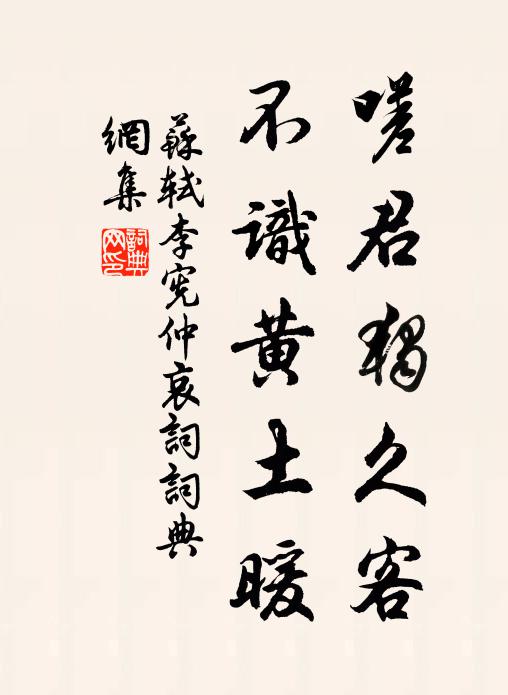 嗟君獨久客
不識黃土暖
蘇軾李宪仲哀詞詞典
網集
詞典
网印